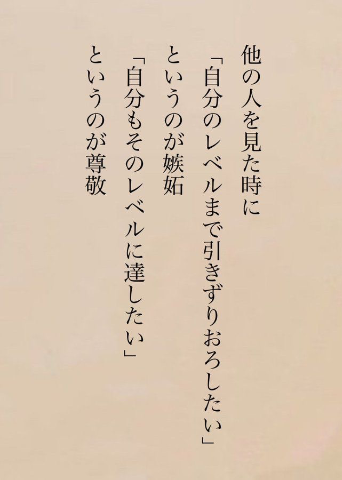 他の人を見た時に
「自分のレベルまで引きずりおろしたい」
というのが嫉妬
「自分もそのレベルに達したい」
というのが尊敬